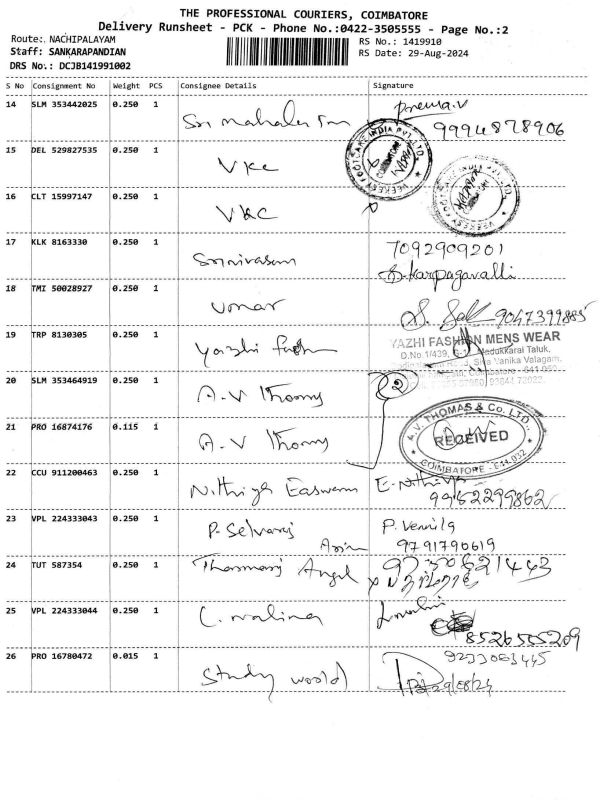 THE PROFESSIONAL COURIERS, COIMBATORE
Delivery Runsheet - PCK - Phone No.:0422-3505555 - Page No.:2
Route: NACHIPALAYAM
RS No.: 1419910
Staff: SANKARAPANDIAN
RS Date: 29-Aug-2024
DRS No.: DCJB141991002
S No Consignment No Weight PCS Consignee Details Signature
14 SLM 353442025 0.250 1 Sri Prema.V
9994878906
15 DEL 529827535 0.250 1 VKC
16 CLT 15997147 0.250 1 VKC
17 KLK 8163330 0.250 1 Srinivasan 7092909201
S. Karpagavalli
18 TMI 50028927 0.250 1 Umar 9047399885
19 TRP 8130305 0.250 1 Yazhi
YAZHI FASHION MENS WEAR
D.No.1/439, Madukkarai Taluk,
20 SLM 353464919 0.250 1 A.V Thomas 2
21 PRO 16874176 0.115 1 A.V Thomas
A.V. THOMAS & Co. LTD.,
RECEIVED
COIMBATORE - 641 032
22 CCU 911200463 0.250 1 Nithiya Easwaran E. Nithiya
9952299862
23 VPL 224333043 0.250 1 P. Selvaraj P. Vennila
9791790619
24 TUT 587354 0.250 1 Angel
25 VPL 224333044 0.250 1 C. Malini
8526555209
26 PRO 16780472 0.015 1 Study World 9233063445
29/08/24